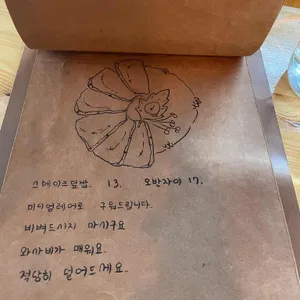 스테이크덮밥. 13. 오반자이 17.
미디엄레어로 구워드립니다.
비벼드시지 마시구요
와사비가 매워요..
적당히 덜어드세요..